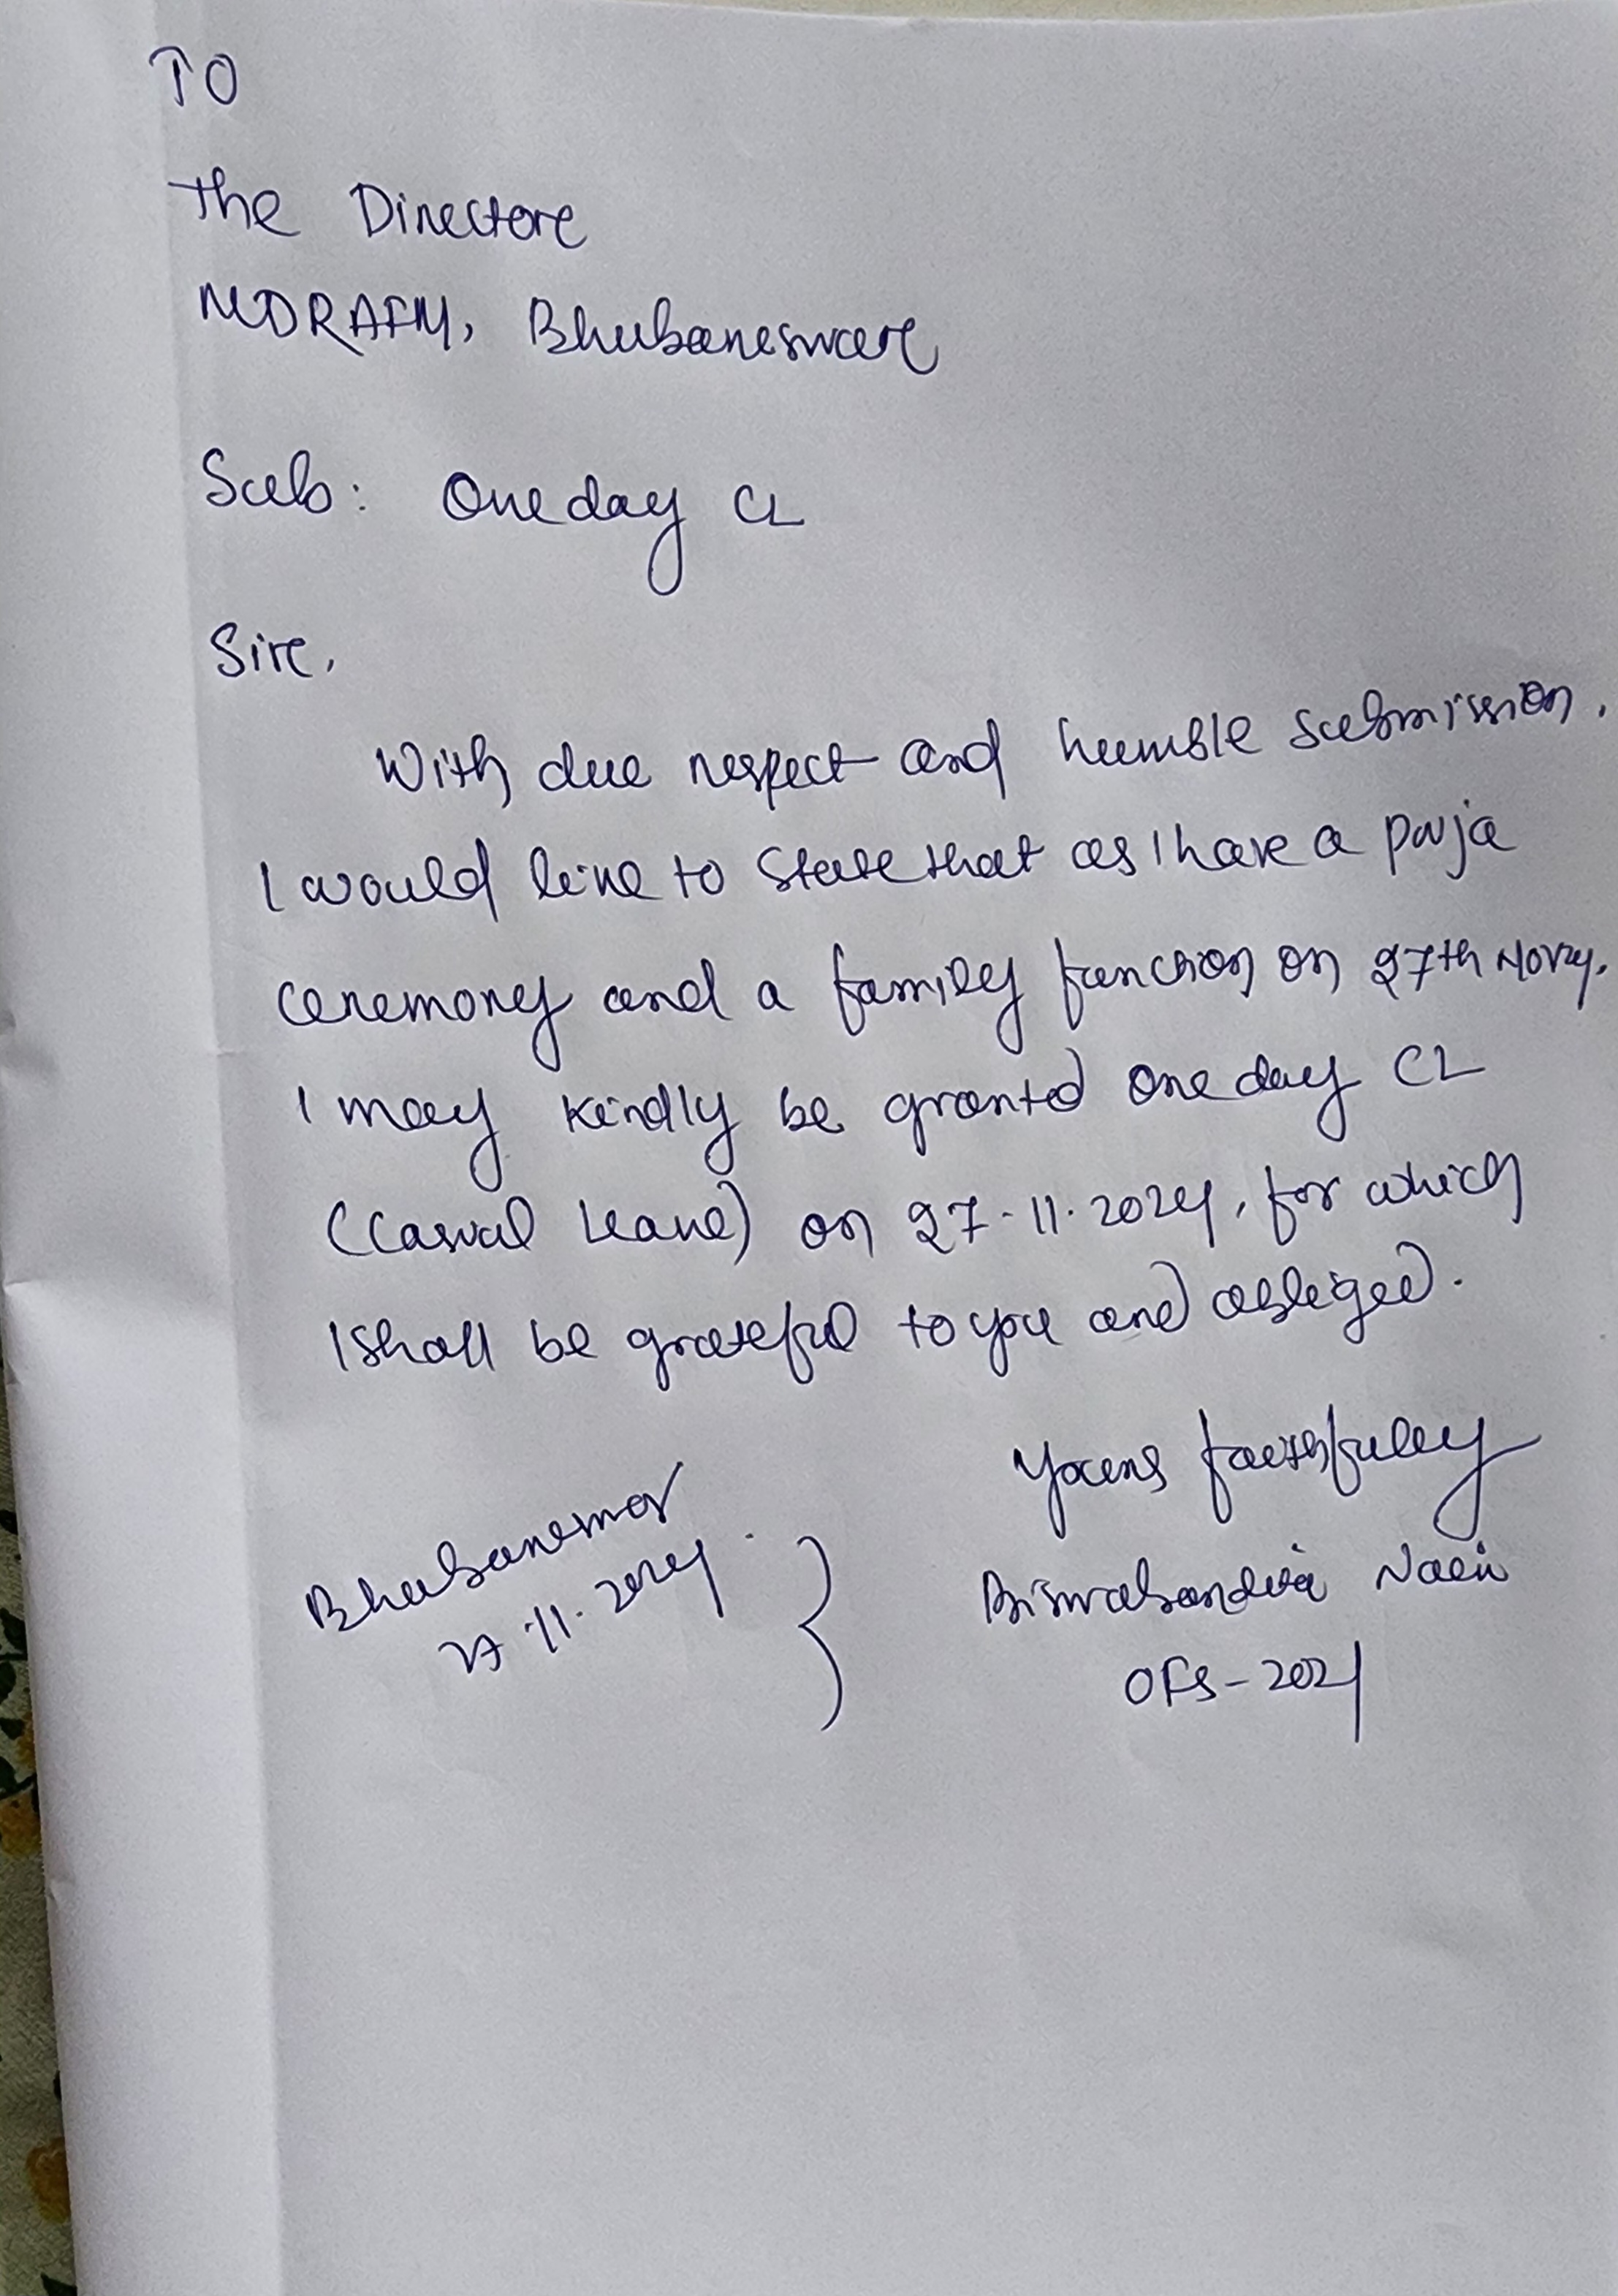 TO
The Director
MDRAFM, Bhubaneswar
Sub: One day CL
Sir,
With due respect and humble submission,
I would like to state that as I have a puja
ceremony and a family function on 27th
I may kindly be granted one day CL
(Casual Leave) on 27-11-2024, for which
I shall be grateful to you and obliged.
Yours faithfully
Bhubaneswar
27.11.2024
OFS-2021